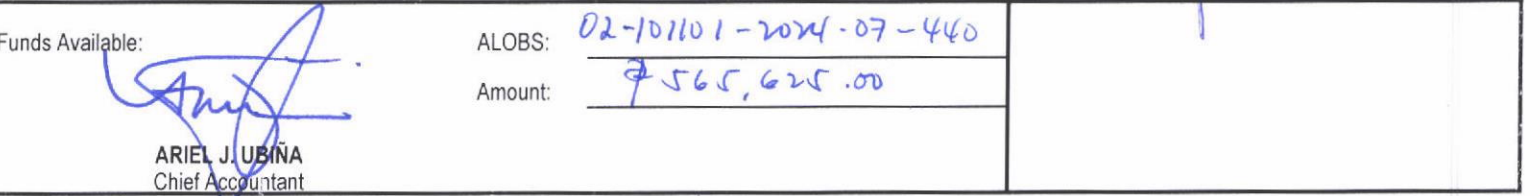 Funds Available:
ALOBS: 02-101101-2024-07-440
Amount: ₱ 565,625.00
ARIEL J. UBIÑA
Chief Accountant